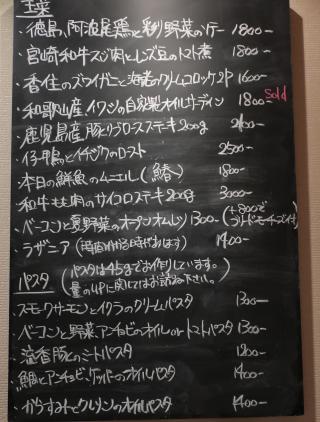 主菜
・徳島、阿波尾鶏と彩り野菜の 1800-
・宮崎和牛スジ肉とレンズ豆のトマト煮 1800-
・香住のズワイガニと海老のクリームコロッケ2P 1600-
・和歌山産イワシの自家製オイルサーディン 1800- Sold
・鹿児島産豚肩ロースステーキ200g 2400-
・仔鴨とイチジクのロースト 2500-
・本日の鮮魚のムニエル(鰆) 1800-
・和牛モモ肉のサイコロステーキ200g 3000-
・ベーコンと夏野菜のオープンオムレツ 1300- (+800で
ブリードモーチーズ付)
・ラザニア ( 時があります) 1400-
パスタ (パスタは45gでお作りしています。
量のUPに関してはお訪ね下さい。)
・スモークサーモンとイクラのクリームパスタ 1300-
・ベーコンと野菜、アンチョビのオイルorトマトパスタ 1300-
・淡香豚のミートパスタ 1200-
・鯛とアンチョビ、ケッパーのオイルパスタ 1400-
・からすみとクルミンのオイルパスタ 1400-